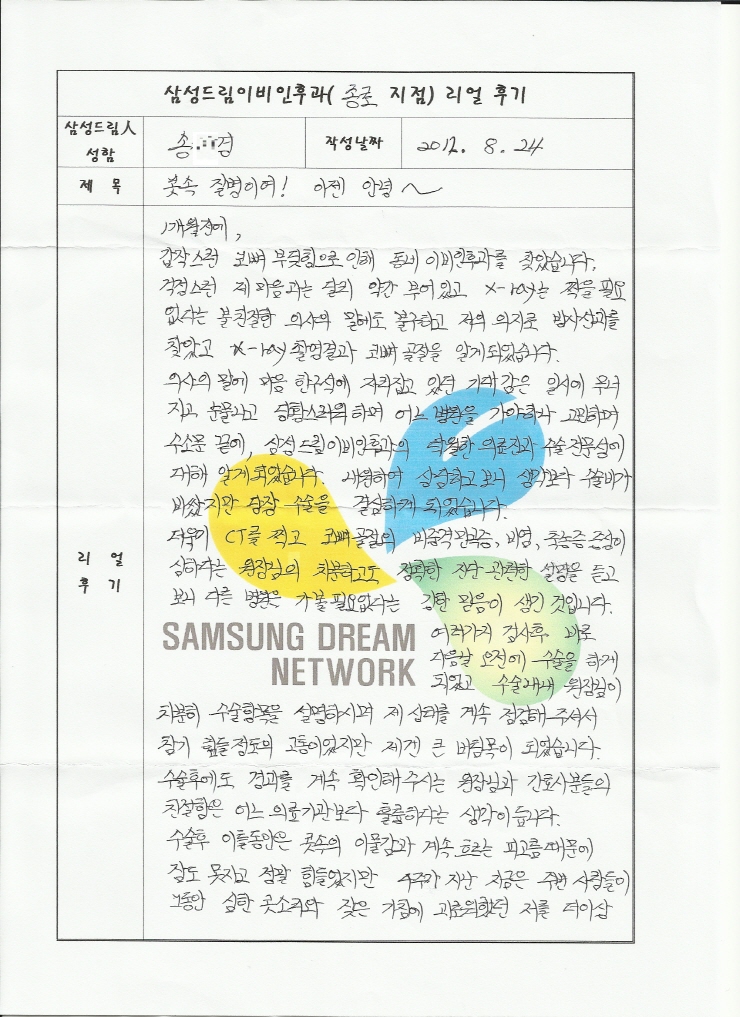 삼성드림이비인후과( 종로 지점) 리얼 후기
삼성드림人
성함
송 경
작성날짜
2012. 8. 24
제 목
콧속 질병이여! 이젠 안녕~
1개월전에,
갑작스런 코뼈 부딪힘으로 인해 동네 이비인후과를 찾았습니다.
걱정스런 제 마음과는 달리 약간 부어있고 x-ray는 찍을 필요
없다는 불친절한 의사의 말에도 불구하고 저의 의지로 방사선과를
찾았고 x-ray 촬영결과 코뼈 골절을 알게되었습니다.
의사의 말에 마음 한구석에 자리잡고 있던 기대감은 일시에 무너
지고 눈물나고 당황스러워 하며 어느 병원을 가야하나 고민하며
수소문 끝에, 삼성드림이비인후과의 탁월한 의료진과 수술전문성에
대해 알게되었습니다. 내원하여 상담하고보니 생각보다 수술비가
비쌌지만 당장 수술을 결심하게 되었습니다.
더욱이 CT를 찍고 코뼈골절외 비중격만곡증, 비염, 축농증 증상이
심하다는 원장님의 차분하고도 정확한 진단 관련한 설명을 듣고
보니 다른 병원은 가볼필요없다는 강한 믿음이 생긴 것입니다.
여러가지 검사후 바로
다음날 오전에 수술을 하게
되었고 수술내내 원장님이
차분히 수술항목을 설명하시며 제 상태를 계속 점검해 주셔서
참기 힘들정도의 고통이었지만 제겐 큰 버팀목이 되었습니다.
수술후에도 경과를 계속 확인해 주시는 원장님과 간호사분들의
친절함은 어느 의료기관보다 훌륭하다는 생각이 듭니다.
수술후 이틀동안은 콧속의 이물감과 계속 흐르는 피고름 때문에
잠도 못자고 정말 힘들었지만 4주가 지난 지금은 주변 사람들이
그동안 심한 콧소리와 잦은 기침에 괴로워했던 저를 더이상
리 얼
후 기
SAMSUNG DREAM
NETWORK